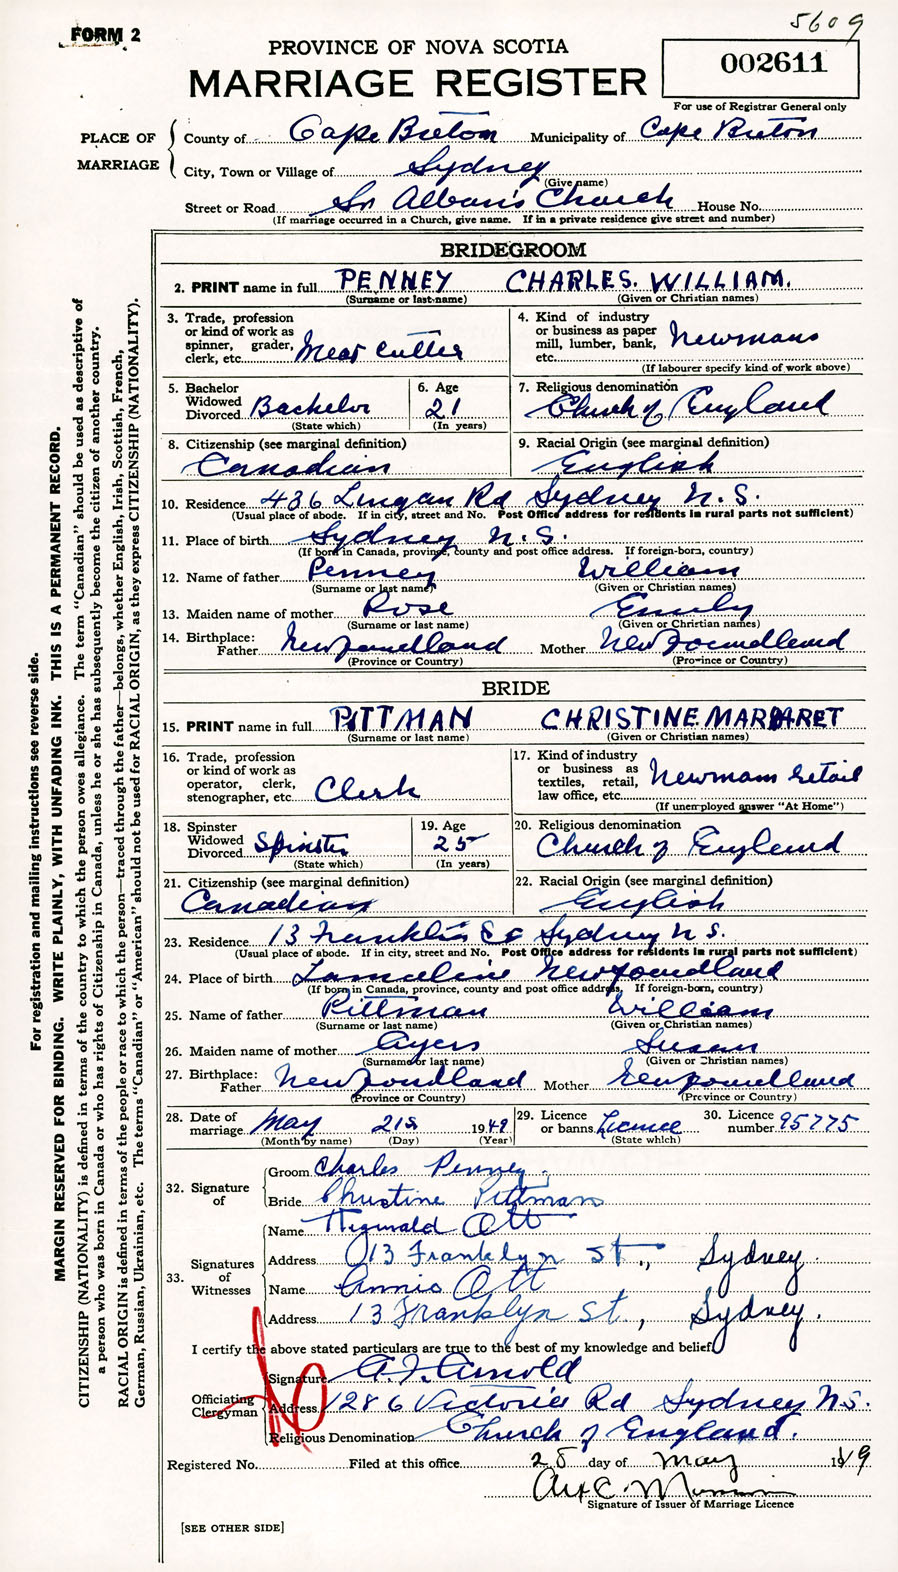 5609
FORM 2
PROVINCE OF NOVA SCOTIA
MARRIAGE REGISTER
002611
For use of Registrar General only
PLACE OF MARRIAGE
County of Cape Breton Municipality of Cape Breton
City, Town or Village of Sydney
(Give name)
Street or Road St Alban's Church House No.
(If marriage occurred in a Church, give name. If in a private residence give street and number)
BRIDEGROOM
2. PRINT name in full PENNEY CHARLES. WILLIAM.
(Surname or last-name) (Given or Christian names)
3. Trade, profession or kind of work as spinner, grader, clerk, etc. Meat Cutter
4. Kind of industry or business as paper mill, lumber, bank, etc. Newmans
(If labourer specify kind of work above)
5. Bachelor Widowed Divorced Bachelor
(State which)
6. Age 21
(In years)
7. Religious denomination
Church of England
8. Citizenship (see marginal definition)
Canadian
9. Racial Origin (see marginal definition)
English
10. Residence 436 Lingan Rd Sydney N.S.
(Usual place of abode. If in city, street and No. Post Office address for residents in rural parts not sufficient)
11. Place of birth Sydney N.S.
(If born in Canada, province, county and post office address. If foreign-born, country)
12. Name of father Penney William
(Surname or last name) (Given or Christian names)
13. Maiden name of mother Rose Emily
(Surname or last name) (Given or Christian names)
14. Birthplace: Father Newfoundland Mother Newfoundland
(Province or Country) (Province or Country)
BRIDE
15. PRINT name in full PITTMAN CHRISTINE MARGARET
(Surname or last name) (Given or Christian names)
16. Trade, profession or kind of work as operator, clerk, stenographer, etc. Clerk
17. Kind of industry or business as textiles, retail, law office, etc. Newmans retail
(If unemployed answer "At Home")
18. Spinster Widowed Divorced Spinster
(State which)
19. Age 25
(In years)
20. Religious denomination
Church of England
21. Citizenship (see marginal definition)
Canadian
22. Racial Origin (see marginal definition)
English
23. Residence 13 Franklin Sydney N.S.
(Usual place of abode. If in city, street and No. Post Office address for residents in rural parts not sufficient)
24. Place of birth Lamaline Newfoundland
(If born in Canada, province, county and post office address. If foreign-born, country)
25. Name of father Pittman William
(Surname or last name) (Given or Christian names)
26. Maiden name of mother Ayers Susan
(Surname or last name) (Given or Christian names)
27. Birthplace: Father Newfoundland Mother Newfoundland
(Province or Country) (Province or Country)
28. Date of marriage May 21st 1949
(Month by name) (Day) (Year)
29. Licence or banns Licence
(State which)
30. Licence number 95775
32. Signature of
Groom Charles Penney.
Bride Christine Pittman
33. Signatures of Witnesses
Name Reginald Ott
Address 13 Franklyn St., Sydney.
Name Annie Ott
Address 13 Franklyn St., Sydney.
I certify the above stated particulars are true to the best of my knowledge and belief
Officiating Clergyman
Signature Arnold
Address 1286 Victoria Rd Sydney N.S.
Religious Denomination Church of England.
Registered No. Filed at this office 28 day of May 1949
Signature of Issuer of Marriage Licence
[SEE OTHER SIDE]
For registration and mailing instructions see reverse side.
MARGIN RESERVED FOR BINDING. WRITE PLAINLY, WITH UNFADING INK. THIS IS A PERMANENT RECORD.
CITIZENSHIP (NATIONALITY) is defined in terms of the country to which the person owes allegiance. The term "Canadian" should be used as descriptive of
a person who was born in Canada or who has rights of Citizenship in Canada, unless he or she has subsequently become the citizen of another country.
RACIAL ORIGIN is defined in terms of the people or race to which the person—traced through the father—belongs, whether English, Irish, Scottish, French,
German, Russian, Ukrainian, etc. The terms "Canadian" or "American" should not be used for RACIAL ORIGIN, as they express CITIZENSHIP (NATIONALITY).